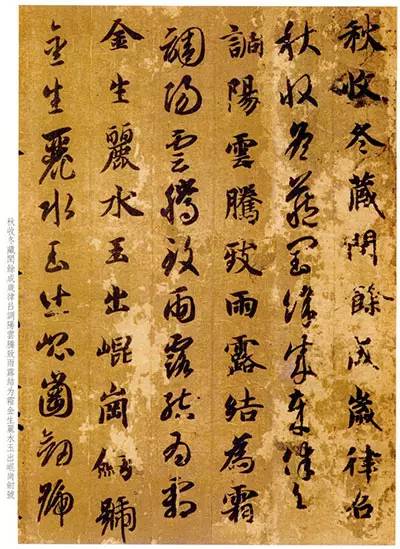 秋收冬藏閏餘成歲律召
秋收冬藏閏餘成歲律召
調陽雲騰致雨露結為霜
調陽雲騰致雨露結為霜
金生麗水玉出崐崗劍號
金生麗水玉出崐崗劍號
秋收冬藏閏餘成歲律吕調陽雲騰致雨露結为霜金生麗水玉出崐岗劍號